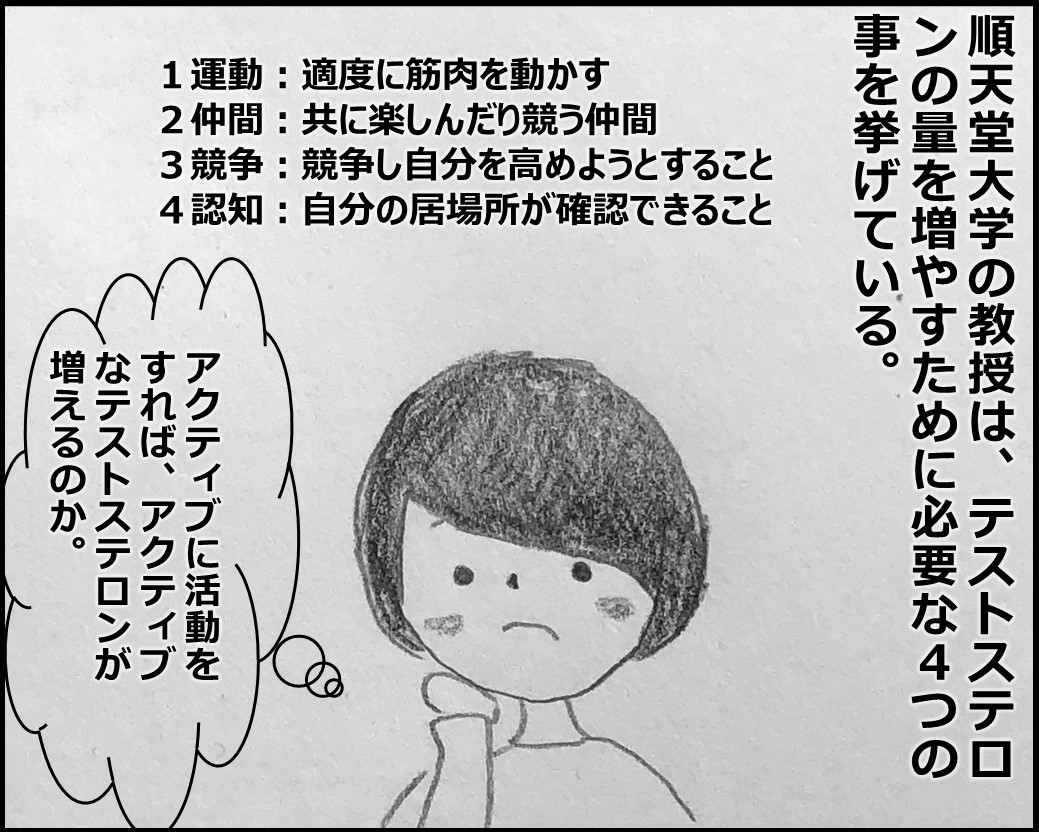 順天堂大学の教授は、テストステロ
ンの量を増やすために必要な４つの
事を挙げている。
１運動：適度に筋肉を動かす
２仲間：共に楽しんだり競う仲間
３競争：競争し自分を高めようとすること
４認知：自分の居場所が確認できること
アクティブに活動を
すれば、アクティブ
なテストステロンが
増えるのか。